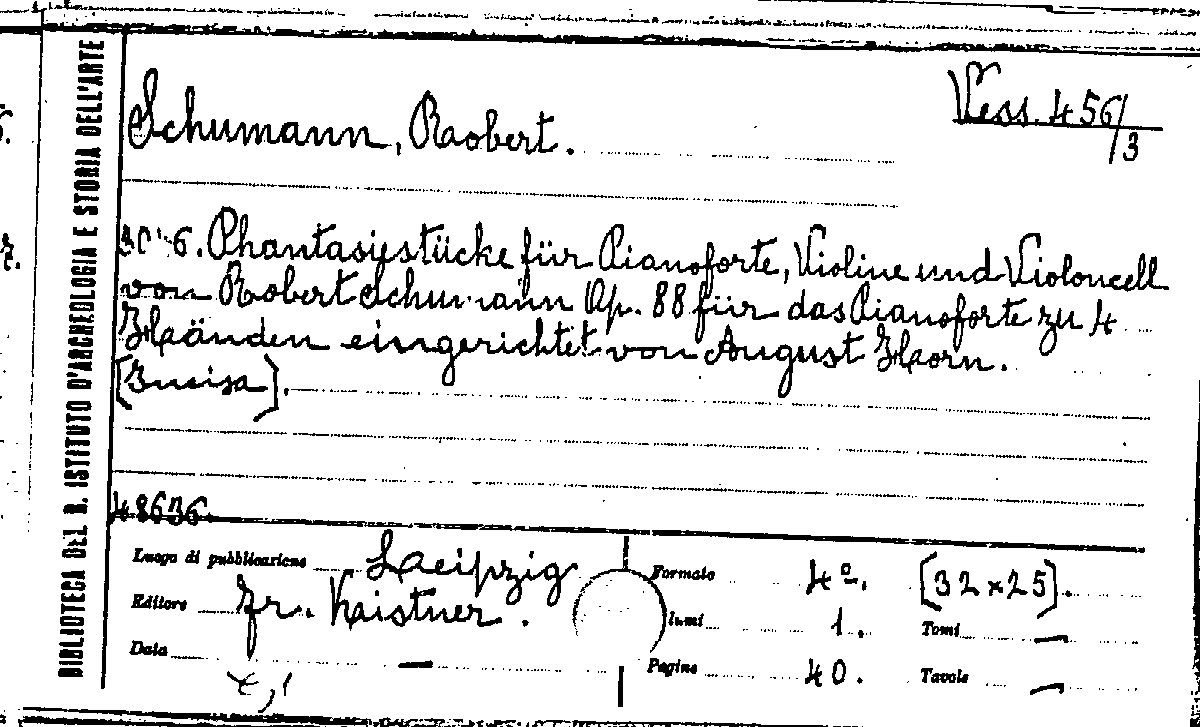 BIBLIOTECA DEL R. ISTITUTO D'ARCHEOLOGIA E STORIA DELL'ARTE
Vess. 456/3
Schumann, Robert.
Phantasiestücke für Pianoforte, Violine und Violoncell
von Robert Schumann Op. 88 für das Pianoforte zu 4
Haänden eingerichtet von August Horn.
[Incisa].
48636.
Luogo di pubblicazione Leipzig Formato 4º. [32 x 25].
Editore Fr. Kaistner. lumi 1. Tomi —
Data — Pagine 40. Tavole —